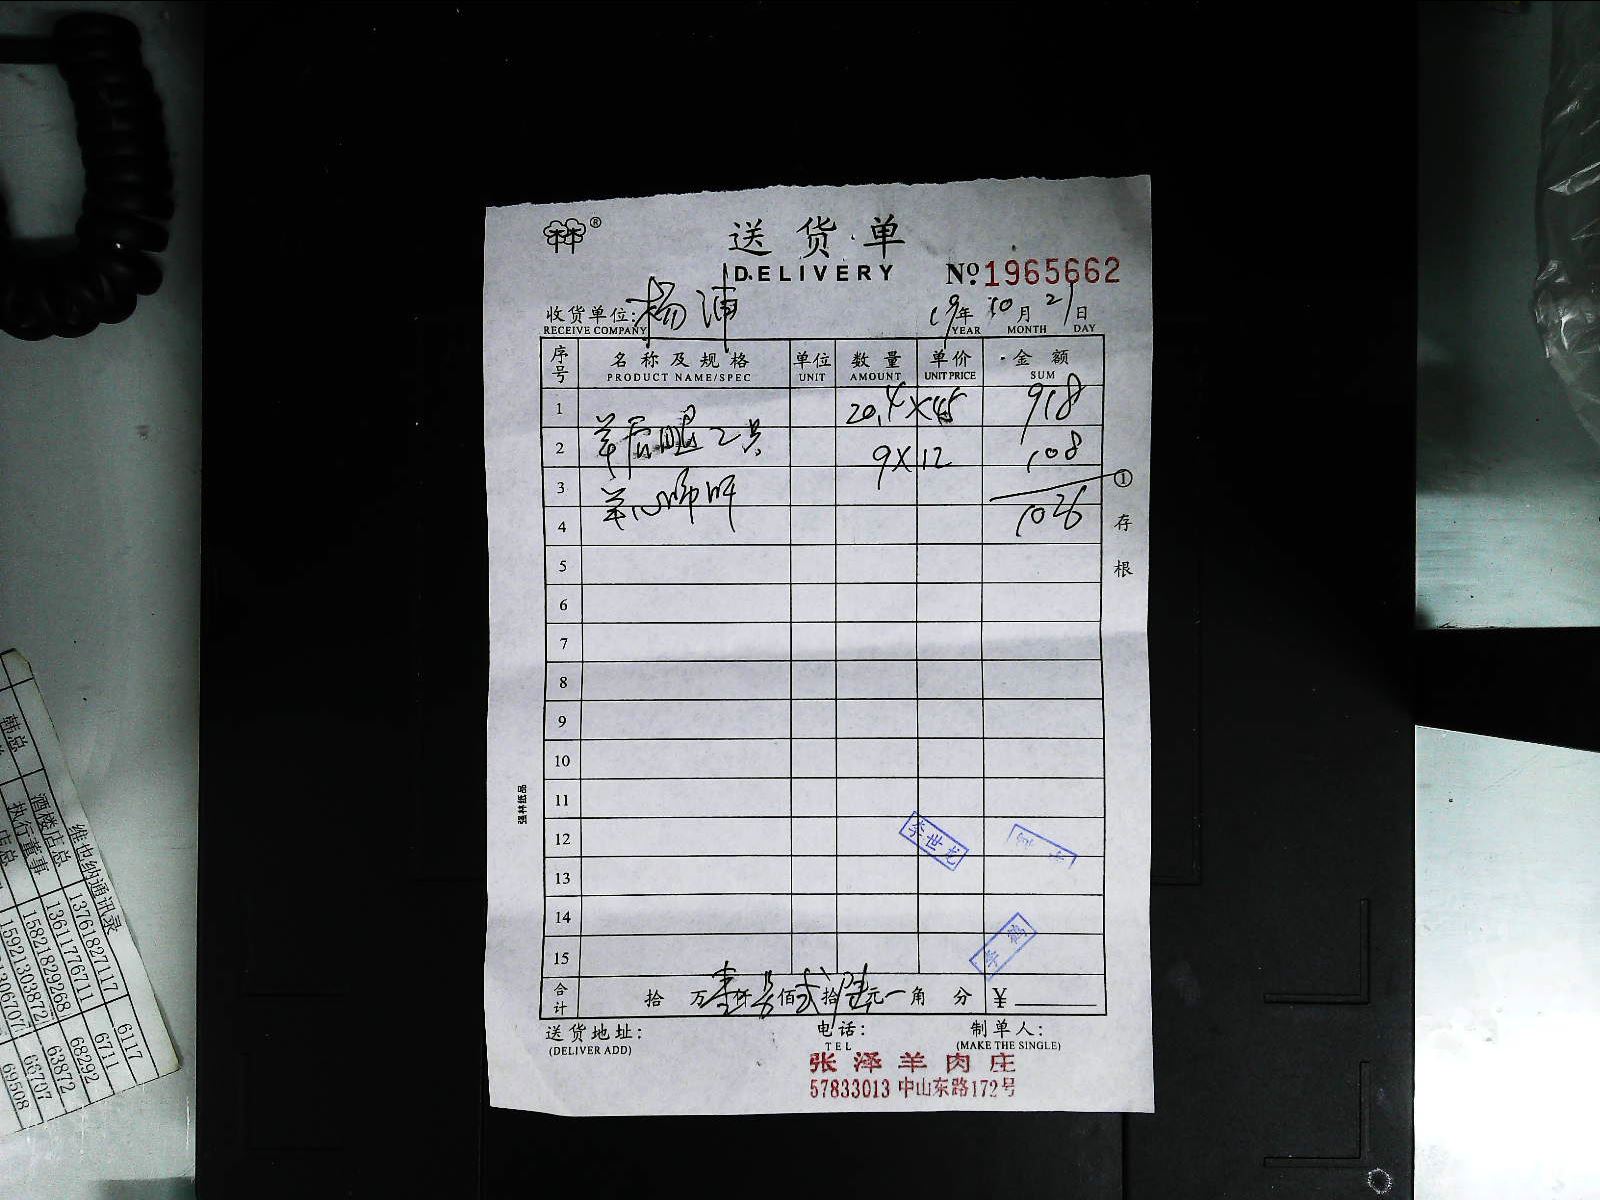 林林®
送货单
DELIVERY
№ 1965662
收货单位: 杨浦
RECEIVE COMPANY
19年 10月 21日
YEAR MONTH DAY
序号 名称及规格 单位 数量 单价 金额
PRODUCT NAME/SPEC UNIT AMOUNT UNIT PRICE SUM
1 20.4×45 918
2 羊后腿2只 9×12 108
3 羊心肺肝
4 1026
5
6
7
8
9
10
11
12
13
14
15
①存根
强林纸品
李世龙
李鹤
合计 拾 万壹仟另佰贰拾陆元一角 分 ¥
送货地址: 电话: 制单人:
(DELIVER ADD) TEL (MAKE THE SINGLE)
张泽羊肉庄
57833013 中山东路172号
维也纳通讯录
韩总 酒楼店总 13761827117 6117
执行董事 13611776711 6711
店总 15821829268 68292
15921303872 63872
66707
69508